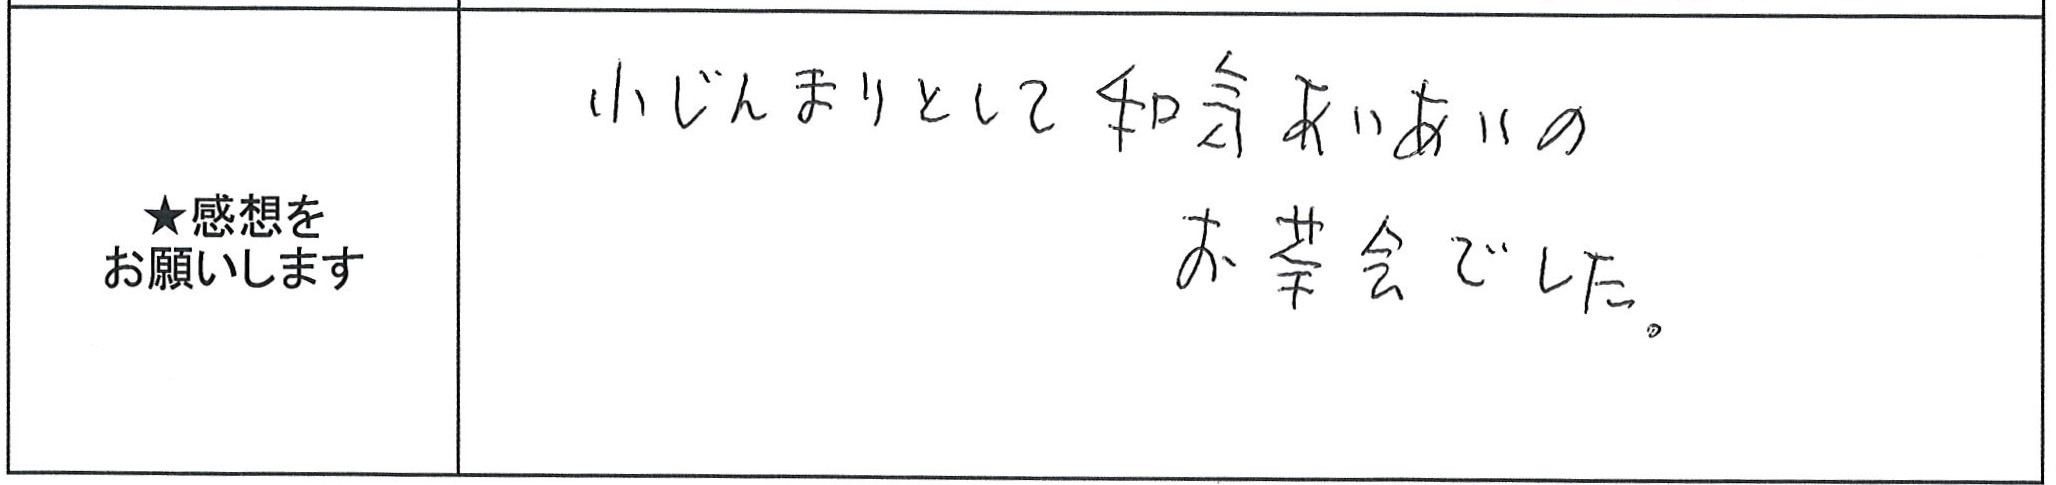 ★感想を
お願いします
小じんまりとして和気あいあいの
お茶会でした。